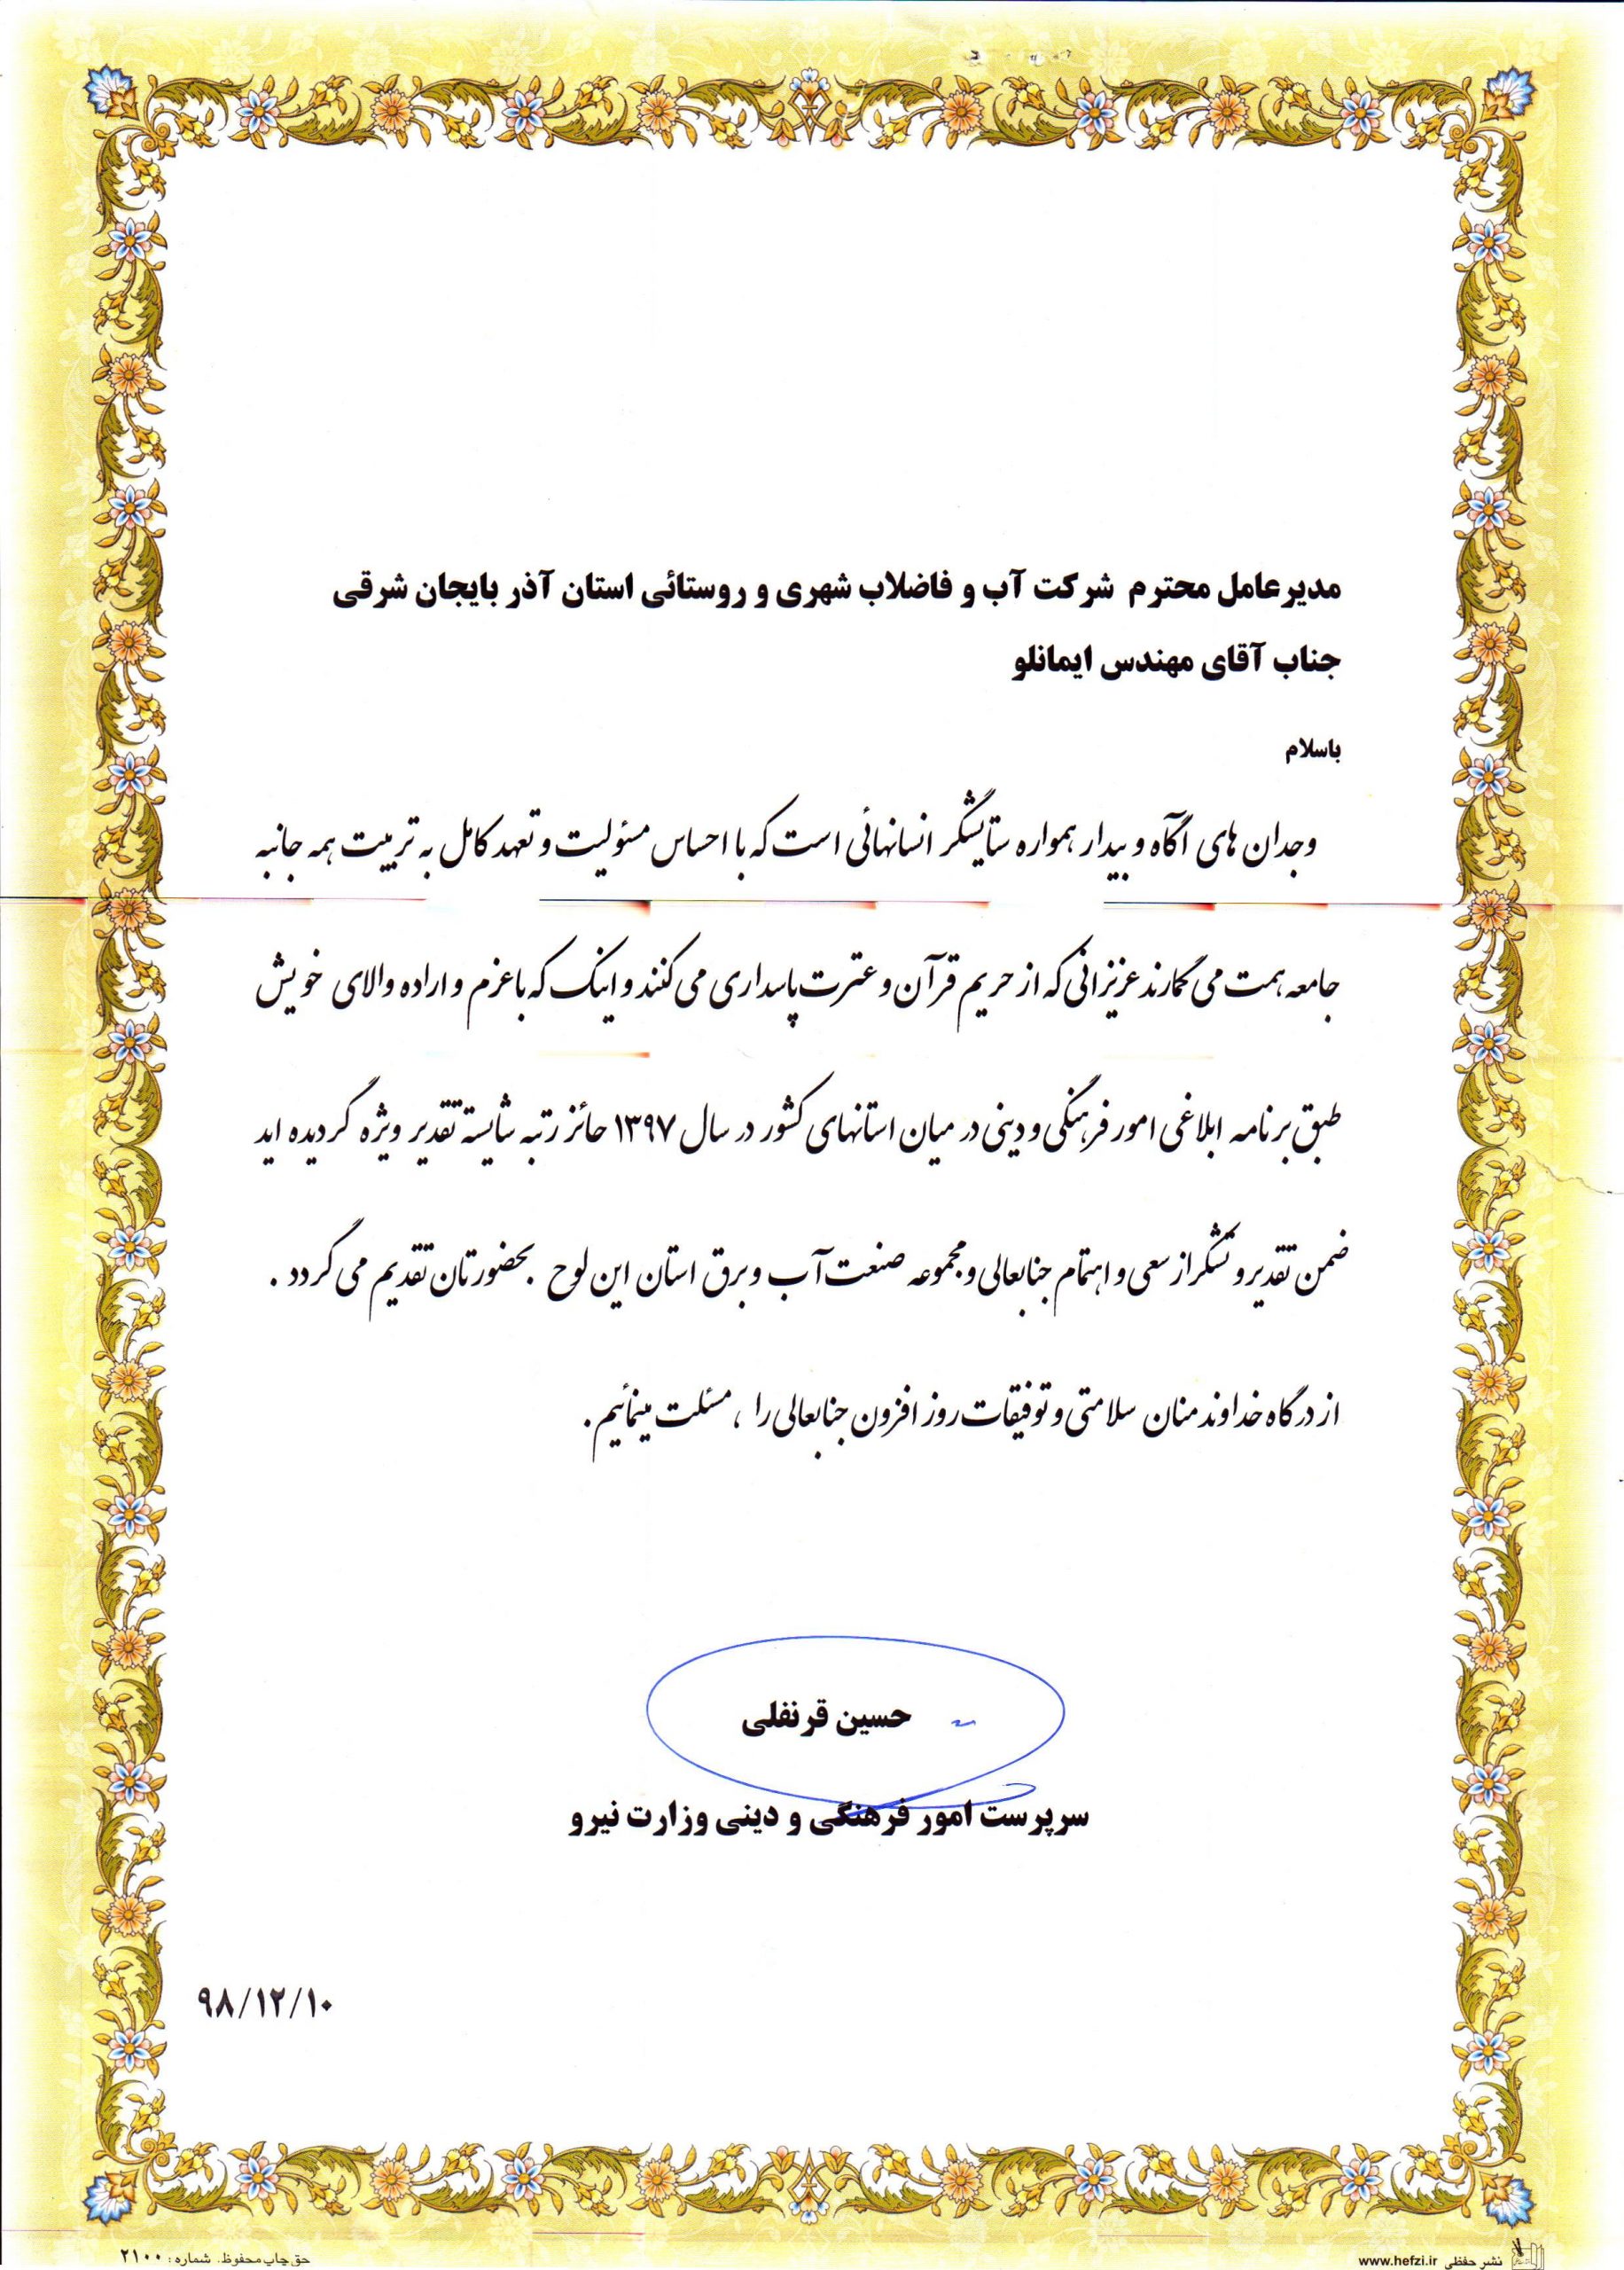 مدیرعامل محترم شرکت آب و فاضلاب شهری و روستائی استان آذر بایجان شرقی
جناب آقای مهندس ایمانلو
باسلام
وجدان های آگاه و بیدار همواره ستایشگر انسانهائی است که با احساس مسئولیت و تعهد کامل به تربیت همه جانبه
جامعه همت می گمارند عزیزانی که از حریم قرآن و عترت پاسداری می کنند و اینک که با عزم و اراده والای خویش
طبق برنامه ابلاغی امور فرهنگی و دینی در میان استانهای کشور در سال ۱۳۹۷ حائز رتبه شایسته تقدیر ویژه گردیده اید
ضمن تقدیر و تشکر از سعی و اهتمام جنابعالی و مجموعه صنعت آب و برق استان این لوح بحضورتان تقدیم می گردد .
از درگاه خداوند منان سلامتی و توفیقات روز افزون جنابعالی را ، مسئلت مینمائیم .
حسین قرنفلی
سرپرست امور فرهنگی و دینی وزارت نیرو
۹۸/۱۲/۱۰
نشر حفظی www.hefzi.ir
حق چاپ محفوظ. شماره : ۲۱۰۰